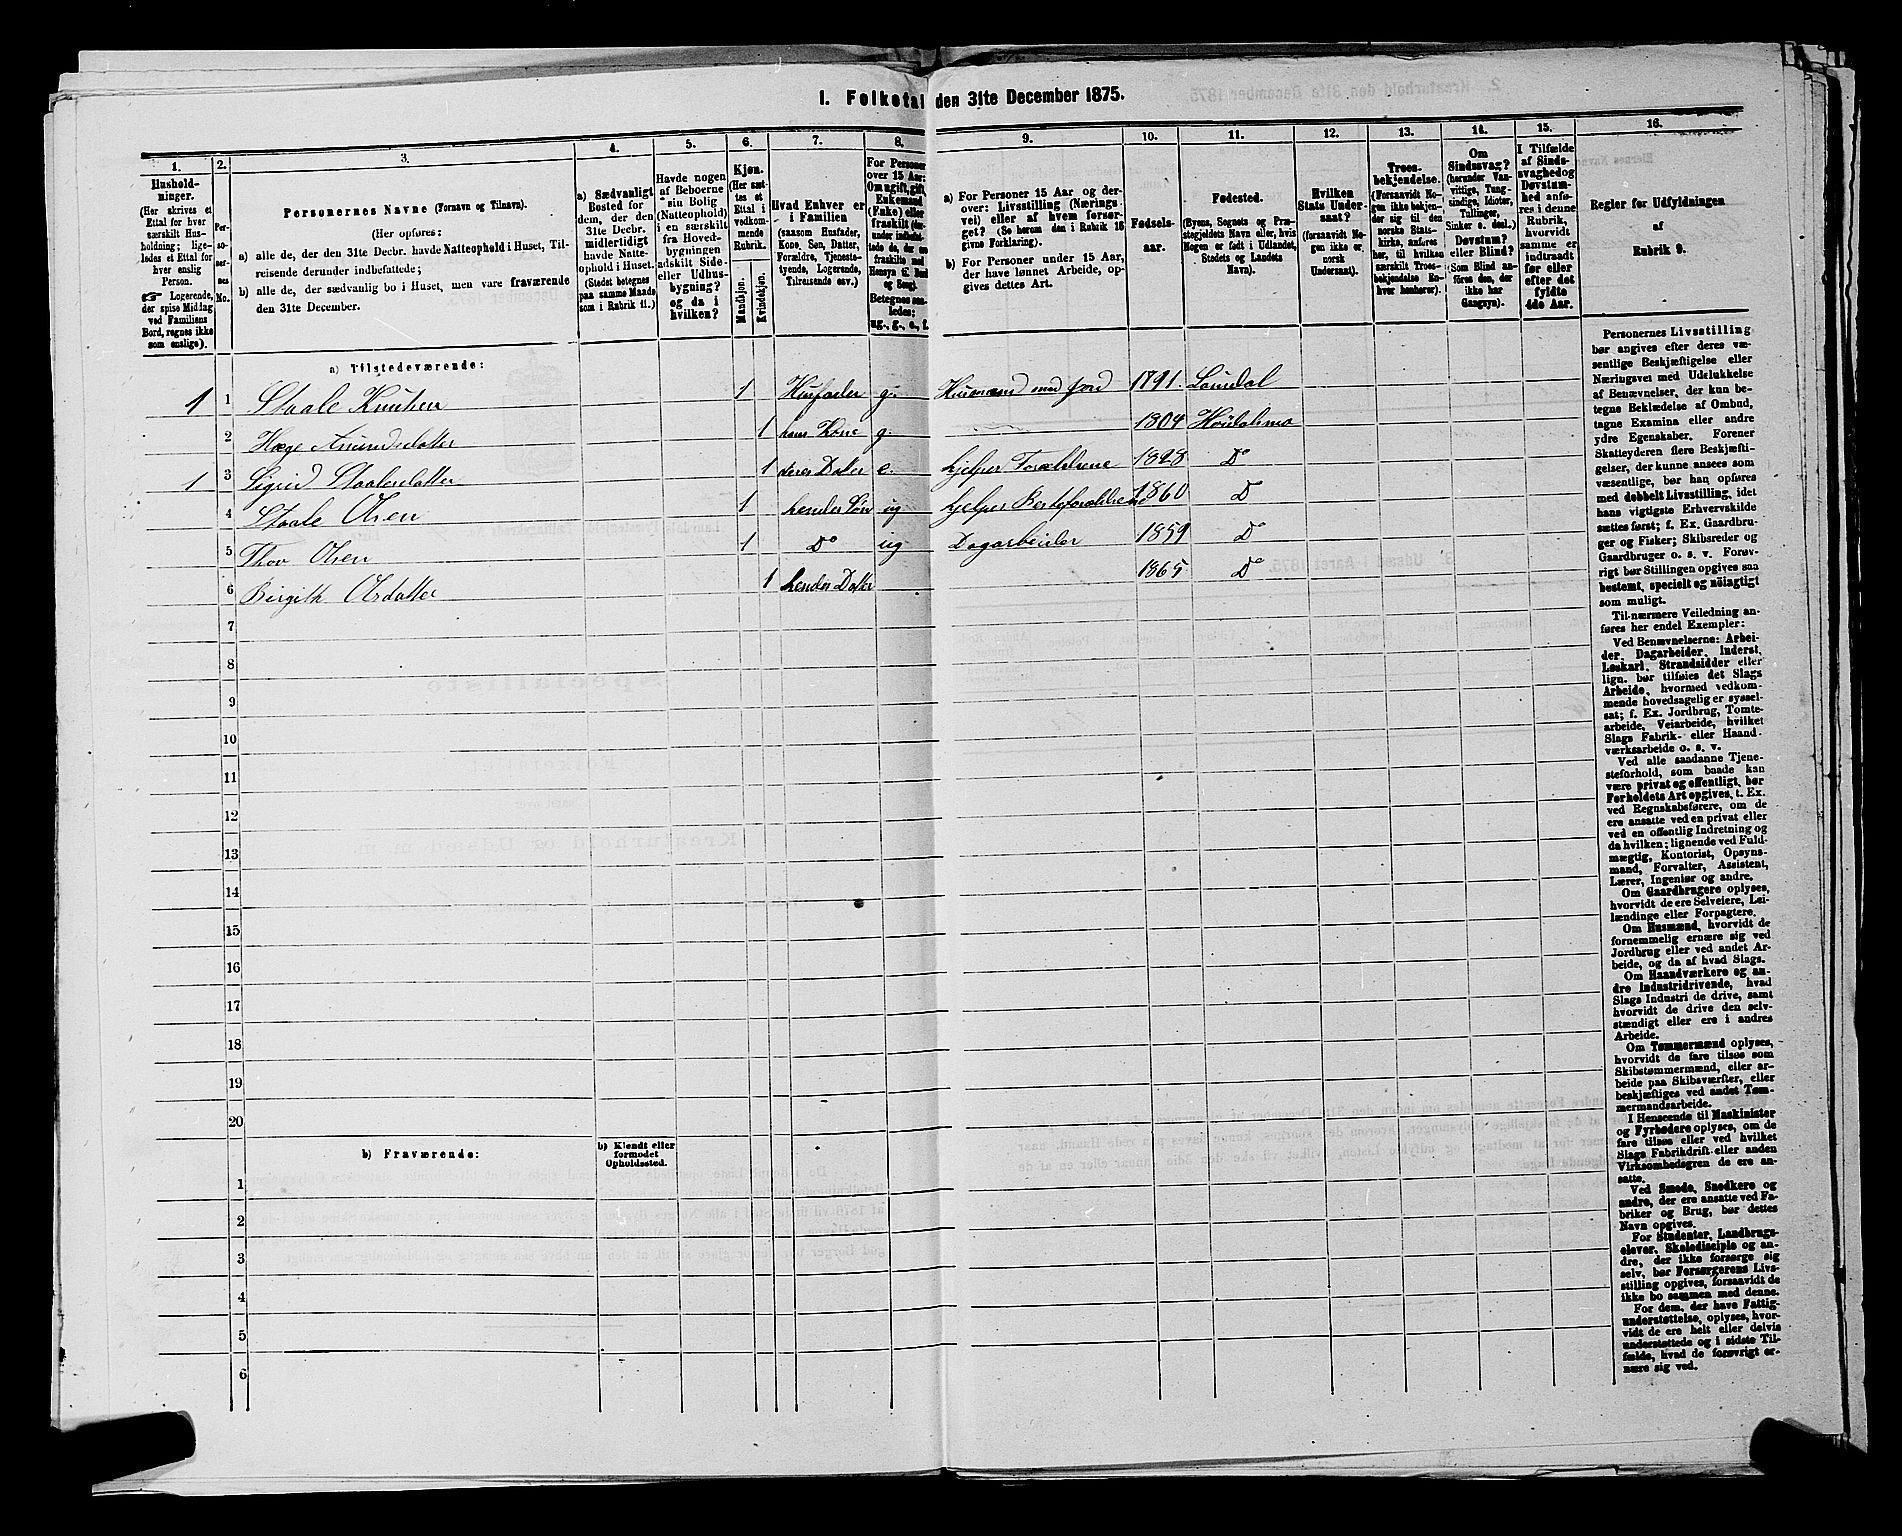 I. Folketal den 31te December 1875.
1. 2. 3. 4. 5. 6. 7. 8. 9. 10. 11. 12. 13. 14. 15. 16.
Hushold-
ninger.
(Her skrives et
Ettal for hver
særskilt Hus-
holdning; lige-
ledes et Ettal for
hver enslig
Person.
☞ Logerende,
der spise Middag
ved Familiens
Bord, regnes ikke
som enslige).
Per-
so-
ner-
nes
No.
Personernes Navne (Fornavn og Tilnavn).
(Her opføres:
a) alle de, der den 31te Decbr. havde Natteophold i Huset, Til-
reisende derunder indbefattede;
b) alle de, der sædvanlig bo i Huset, men vare fraværende
den 31te December.
a) Sædvanligt
Bosted for
dem, der den
31te Decbr.
midlertidigt
havde Natte-
ophold i Huset.
(Stedet betegnes
paa samme Maade
som i Rubrik 11.)
Havde nogen
af Beboerne
sin Bolig
(Natteophold)
i en særskilt
fra Hoved-
bygningen
adskilt Side-
eller Udhus-
bygning?
og da i
hvilken?
Kjøn.
(Her sæt-
tes et
Ettal i
vedkom-
mende
Rubrik.
Mandkjøn.
Kvindekjøn.
Hvad Enhver er
i Familien
(saasom Husfader,
Kone, Søn, Datter,
Forældre, Tjeneste-
tyende, Logerende,
Tilreisende osv.)
For Personer
over 15 Aar:
Om ugift, gift,
Enkemand
(Enke) eller
fraskilt
Betegnes saa-
ledes:
ug., g., e., f.
a) For Personer 15 Aar og der-
over: Livsstilling (Nærings-
vei) eller af hvem forsør-
get? (Se herom den i Rubrik 16
givne Forklaring).
b) For Personer under 15 Aar,
der have lønnet Arbeide, op-
gives dettes Art.
Fødsels-
aar.
Fødested.
(Byens, Sognets og Præ-
stegjeldets Navn eller, hvis
Nogen er født i Udlandet,
Stedets og Landets
Navn).
Hvilken
Stats Under-
saat?
(forsaavidt No-
gen ikke er
norsk
Undersaat).
Troes-
bekjendelse.
(Forsaavidt No-
gen ikke bekjen-
der sig til den
norske Stats-
kirke, anføres
her, til hvilken
særskilt Troes-
bekjendelse En-
hver henhører).
Om
Sindssvag?
(herunder Van-
vittige, Tung-
sindige, Idioter,
Tullinger,
Sinker o. desl.)
Døvstum?
eller Blind?
(Som Blind an-
føres den, der
ikke har
Gangsyn).
I Tilfælde
af Sinds-
svaghed og
Døvstum-
hed anfø-
res i denne
Rubrik,
hvorvidt
samme er
indtraadt
før eller
efter det
fyldte
4de Aar.
Regler for Udfyldningen
af
Rubrik 9.
a) Tilstedeværende:
1 1 Staale Knutsen 1 Husfader g. Husmand med Jord 1791. Laurdal
2 Hæge Amundsdatter 1 hans Kone g. 1804 Høidalsmo
1 3 Sigrid Staalesdatter 1 deres Datter e. hjelper Forældrene 1828 Do
4 Staale Olsen 1 hendes Søn ug hjelper Besteforældrene 1860 Do
5 Thov Olsen 1 Do ug Dagarbeider 1859 Do
6 Birgith Olsdatter 1 hendes Datter 1865 Do
7
8
9
10
11
12
13
14
15
16
17
18
19
20
b) Fraværende:
b) Kjendt eller
formodet
Opholdssted.
1
2
3
4
5
6
Personernes Livsstilling
bør angives efter deres væ-
sentlige Beskjæftigelse eller
Næringsvei med Udelukkelse
af Benævnelser, der kun be-
tegne Beklædelse af Ombud,
tagne Examina eller andre
ydre Egenskaber. Forener
Skatteyderen flere Beskjæfti-
gelser, der kunne ansees som
væsentlige, bør han opføres
med dobbelt Livsstilling, idet
hans vigtigste Erhvervskilde
sættes først; f. Ex. Gaardbru-
ger og Fisker; Skibsreder og
Gaardbruger o. s. v. Forøv-
rigt bør Stillingen opgives saa
bestemt, specielt og nöiagtigt
som muligt.
Til nærmere Veiledning an-
føres her endel Exempler:
Ved Benævnelserne: Arbei-
der, Dagarbeider, Inderst,
Løskarl, Strandsidder eller
lign. bør tilføies det Slags
Arbeide, hvormed vedkom-
mende hovedsagelig er syssel-
sat; f. Ex. Jordbrug, Tomte-
arbeide, Veiarbeide, hvilket
Slags Fabrik- eller Haand-
værksarbeide o. s. v.
Ved alle saadanne Tjene-
steforhold, som baade kan
være privat og offentligt, bør
Forholdets Art opgives, t. Ex.
ved Regnskabsførere, om de
ere ansatte ved en privat eller
ved en offentlig Indretning og
da hvilken; lignende ved Fuld-
mægtig, Kontorist, Opsyns-
mand, Forvalter, Assistent,
Lærer, Ingeniør og andre.
Om Gaardbrugere oplyses,
hvorvidt de ere Selveiere, Lei-
lændinge eller Forpagtere.
Om Husmænd, hvorvidt de
fornemmelig ernære sig ved
Jordbrug eller ved andet Ar-
beide, og da af hvad Slags.
Om Haandværkere og an-
dre Industridrivende, hvad
Slags Industri de drive, samt
hvorvidt de drive den selv-
stændigt eller ere i andres
Arbeide.
Om Tømmermænd oplyses,
hvorvidt de fare tilsøs som
Skibstømmermænd, eller ar-
beide paa Skibsværfter, eller
beskjæftiges ved andet Tøm-
mermandsarbeide.
I Henseende til Maskinister
og Fyrbødere oplyses, om de
fare tilsøs eller ved hvilket
Slags Fabrikdrift eller anden
Virksombedsgren de ere an-
satte.
Ved Smede, Snedkere og
andre, der ere ansatte ved Fa-
briker og Brug, bør dettes
Navn opgives.
For Studenter, Landbrugs-
elever, Skoledisciple og an-
dre, der ikke forsørge sig
selv, bør Forsørgerens Livs-
stilling opgives, forsaavidt de
ikke bo sammen med denne.
For dem, der have Fattig-
understøttelse, oplyses, hvor-
vidt de ere helt eller delvis
understøttede og i sidste Til-
fælde, hvad de forøvrigt er-
nære sig ved.